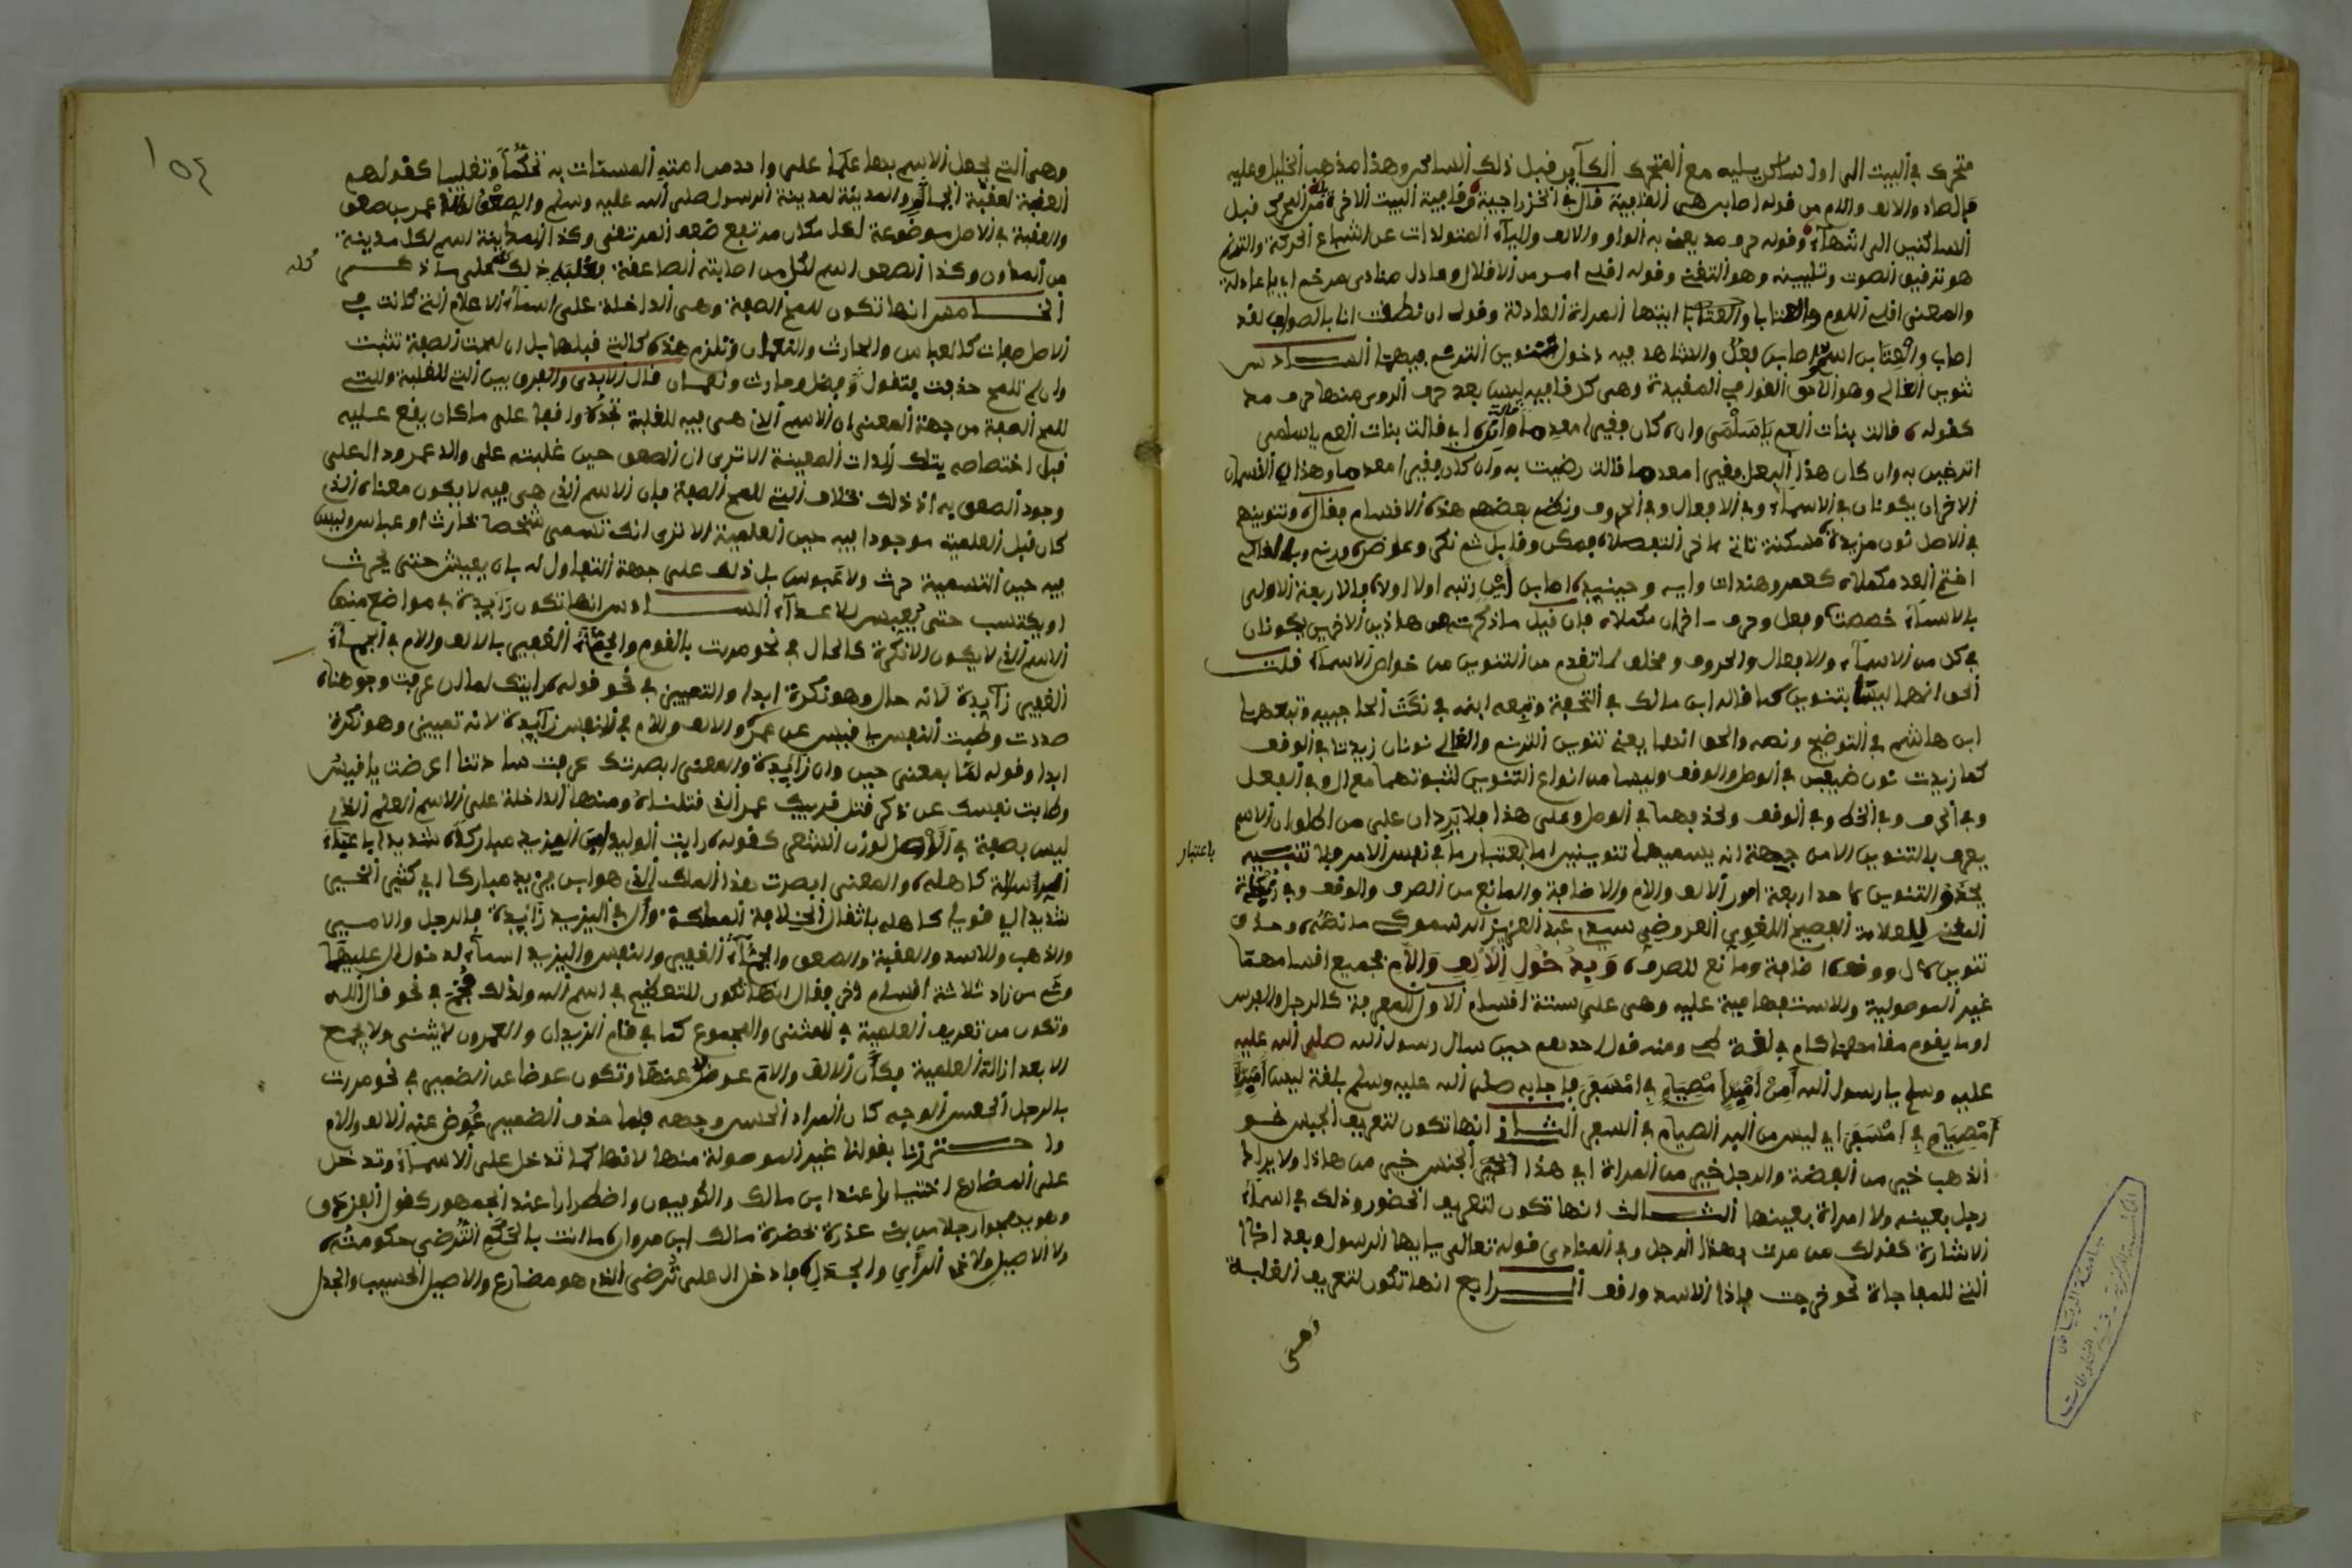 متحرك في البيت الى اول ساكن يليه مع المتحرك الكاين قبل ذلك الساكن وهذا مذهب الخليل وعليه
فالصاد والالف واللام من قوله اصابن هي القافية قال في الخزرجية وقافية البيت الاخيرة من المحرك قبل
الساكنين الى انتهاء وقوله حرف مد يعني به الواو والالف والياء المتولدات عن اشباع الحركة والترنم
هو ترقيق الصوت وتليينه وهو التغني وقوله اقلي امر من الاقلال وعاذل منادى مرخم اي يا عاذلة
والمعنى اقلي اللوم والعتابا ايتها المراة العاذلة وقولي ان نطقت انا بالصواب لقد
اصاب والعتابن اسم واصابن فعل والشاهد فيه دخول تنوين الترنم فيهما الســـادس
تنوين الغالي وهو اللاحق القوافي المقيدة وهي كل قافية ليس بعد حرف الروي منها حرف مد
كقوله قالت بنات العم يا سلمى وان كان فقيرا معدما قالت وان اي قالت بنات العم يا سلمى
اترضين به وان كان هذا البعل فقيرا معدما قالت رضيت به وان كان فقيرا معدما وهذان القسمان
الاخران يكونان في الاسماء وفي الافعال وفي الحروف ونظم بعضهم هذه الاقسام فقال وتنوينهم
في الاصل نون مزيدة مسكنة تاتي
بالاسماء خصصت وفعل وحرف اخران مكملا فان قيل ما ذكرت من هاذين الاخرين يكونان
في كل من الاسماء والافعال والحروف مخالف لما تقدم من ان التنوين من خواص الاسماء قلت
الحق انهما ليسا بتنوين كما قاله ابن مالك في التحفة وتبعه ابنه في نكت الحاجبية وتبعهما
ابن هاشم في التوضيح ونصه والحق انهما يعني تنوين الترنم والغالي نونان زيدتا في الوقف
كما زيدت نون ضيفن في الوصل والوقف وليسا من انواع التنوين لثبوتهما مع ال وفي الفعل
وفي الحرف وفي الخط وفي الوقف ولحذفهما في الوصل وعلى هذا فلا يردان على من اطلق ان الاسم
يعرف بالتنوين الا من جهة انه يسميهما تنوينين اما باعتبار ما في نفس الامر فلا تنبيه
باعتبار
يحذف التنوين لاحد اربعة امور الالف واللام والاضافة والمانع من الصرف والوقف
العلامة الفصيح اللغوي العروضي سيدي عبد العزيز الرسموكي ما نصه وحذف
تنوين بال ووقف اضافة ومانع للصرف وبدخول الالف واللام بجميع اقسامهما
غير الموصولية والاستفهامية عليه وهي على ستة اقسام الاول للمعرفة كالرجل والفرس
او ما يقوم مقامهما كام في لغة طي ومنه قول احدهم حين سال رسول الله صلى الله عليه
عليه وسلم يا رسول الله امن امبر امصيام في امسفر فاجابه صلى الله عليه وسلم بلغة ليس امبر
امصيام في امسفر اي ليس من البر الصيام في السفر الثـــاني انها تكون لتعريف الجنس نحو
الذهب خير من الفضة والرجل خير من المراة اي هذا الجنس خير من هاذا ولا يراد
رجل بعينه ولا امراة بعينها الثـــالث انها تكون لتعريف الحضور وذلك في اسماء
الاشارة كقولك من مررت بهذا الرجل وفي المنادى قوله تعالى يا ايها الرسول وبعد اذا
التي للمفاجاة نحو خرجت فاذا الاسد واقف الـــرابع انها تكون لتعريف الغلبة
وهي
١٥٤
وهي التي يجعل الاسم بها علما على واحد من امته المسميات به تحكما وتغليبا كقولهم
العقبة لعقبة والمدينة لمدينة الرسول صلى الله عليه وسلم والصعق عمر بن صعق
والعقبة في الاصل موضوعة لكل مكان مرتفع صعب المرتقى وكذا المدينة اسم لكل مدينة
من المداين وكذا الصعق اسم لكل من اصابته الصاعقة فغلب ذلك كله على ما ذكـــر
كله
الخـــامس انها تكون للمح الصفة وهي الداخلة على اسماء الاعلام التي كانت في
الاصل صفات كالعباس والحارث والنعمان وتلزم هذه كالتي قبلها بل ان لمحت الصفة تثبت
وان لم تلمح حذفت فتقول فضل وحارث ونعمان قال الابدي والفرق بين التي للغلبة والتي
للمح الصفة من جهة المعنى ان الاسم الذي هي فيه للغلبة تجده واقعا على ما كان يقع عليه
قبل اختصاصه بتلك الذات المعينة الا ترى ان الصعق حين غلبته على والد عمرو دال على
وجود الصعق به اذ ذلك بخلاف التي للمح الصفة فان الاسم الذي هي فيه لا يكون معناه الذي
كان قبل العلمية موجودا فيه حين العلمية الا ترى انك تسمي شخصا بحارث او عباس وليس
فيه حين التسمية حرث ولا عبوس بل ذلك على جهة التفاول له بان يعيش حتى يحرث
او يكتسب حتى يعبس للاعداء الســـادس انها تكون زايدة في مواضع منها
الاسم الذي لا يكون الا نكرة كالحال في نحو مررت بالقوم والجماء الغفير بالالف واللام في الجماء
الغفير زايدة لانه حال وهو نكرة ابدا والتمييز في نحو قوله رايتك لما ان عرفت وجوهنا
صددت وطبت النفس يا قيس عن عمرو والالف واللام في النفس زايدة لانه تمييز وهو نكرة
ابدا وقوله لما بمعنى حين وان زايدة والمعنى ابصرتك عرفت ساداتنا اعرضت يا قيس
وطابت نفسك عن ذكر قتل قريبك عمر الذي قتلناه ومنها الداخلة على الاسم العلم الذي
ليس بصفة في الاصل لوزن الشعر كقوله رايت الوليد بن اليزيد مباركا شديدا باعباء
الخلافة كاهله والمعنى ابصرت هذا الملك الذي هو ابن يزيد مباركا اي كثير الخير
شديدا اي قويا كاهله باثقال الخلافة المملكة وال في اليزيد زايدة فالرجل والامبر
والذهب والاسد والعقبة والصعق والجماء الغفير والنفس واليزيد اسماء لدخول ال عليها
وثم من زاد ثلاثة اقسام اخر فقال انها تكون للتعظيم في اسم الله ولذلك في نحو قال الله
وتكون من تعريف العلمية في المثنى والمجموع كما في قام الزيدان والعمرون لا يثنى ولا يجمع
الا بعد ازالة العلمية فكان الالف واللام عوضا عنها وتكون عوضا عن الضمير في نحو مررت
بالرجل الحسن الوجه كان المراد الحسن وجهه فلما حذف الضمير عوض عنه الالف واللام
واحـــترزنا بقولنا غير الموصولة منها لانها كما تدخل على الاسماء وتدخل
على المضارع اختيارا عند ابن مالك والكوفيين واضطرارا عند الجمهور كقول الفرزدق
وهو يهجوا رجلا من بني عذرة بحضرة مالك ابن مروان ما انت بالحكم الترضى حكومته
ولا الاصيل ولا ذي الراي والجدل فادخل ال على ترضى الذي هو مضارع والاصيل الحسيب والجدل